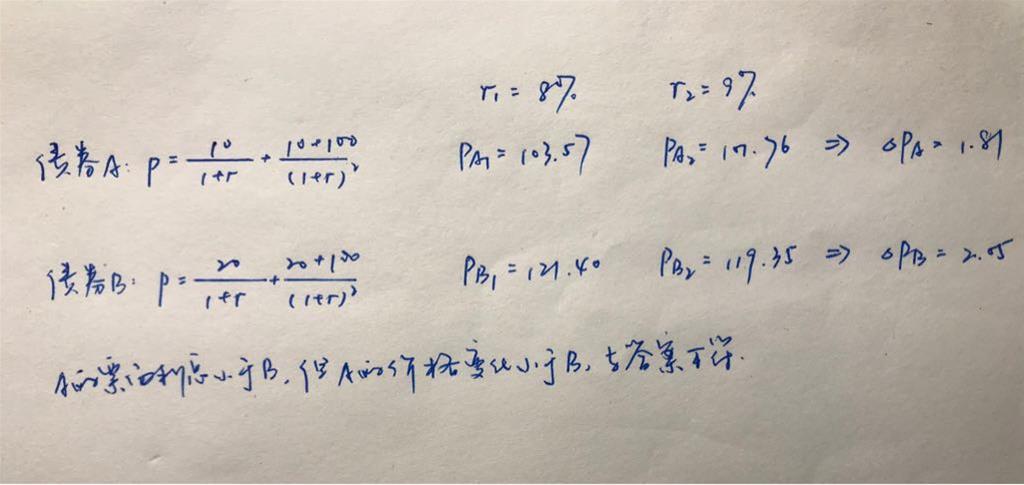 r₁ = 8% r₂ = 9%
债券A: P = 10/(1+r) + (10+100)/(1+r)² PA₁ = 103.57 PA₂ = 101.76 ⇒ △PA = 1.81
债券B: P = 20/(1+r) + (20+100)/(1+r)² PB₁ = 121.40 PB₂ = 119.35 ⇒ △PB = 2.05
A的票面利息小于B, 但A的价格变化小于B, 与答案不符.